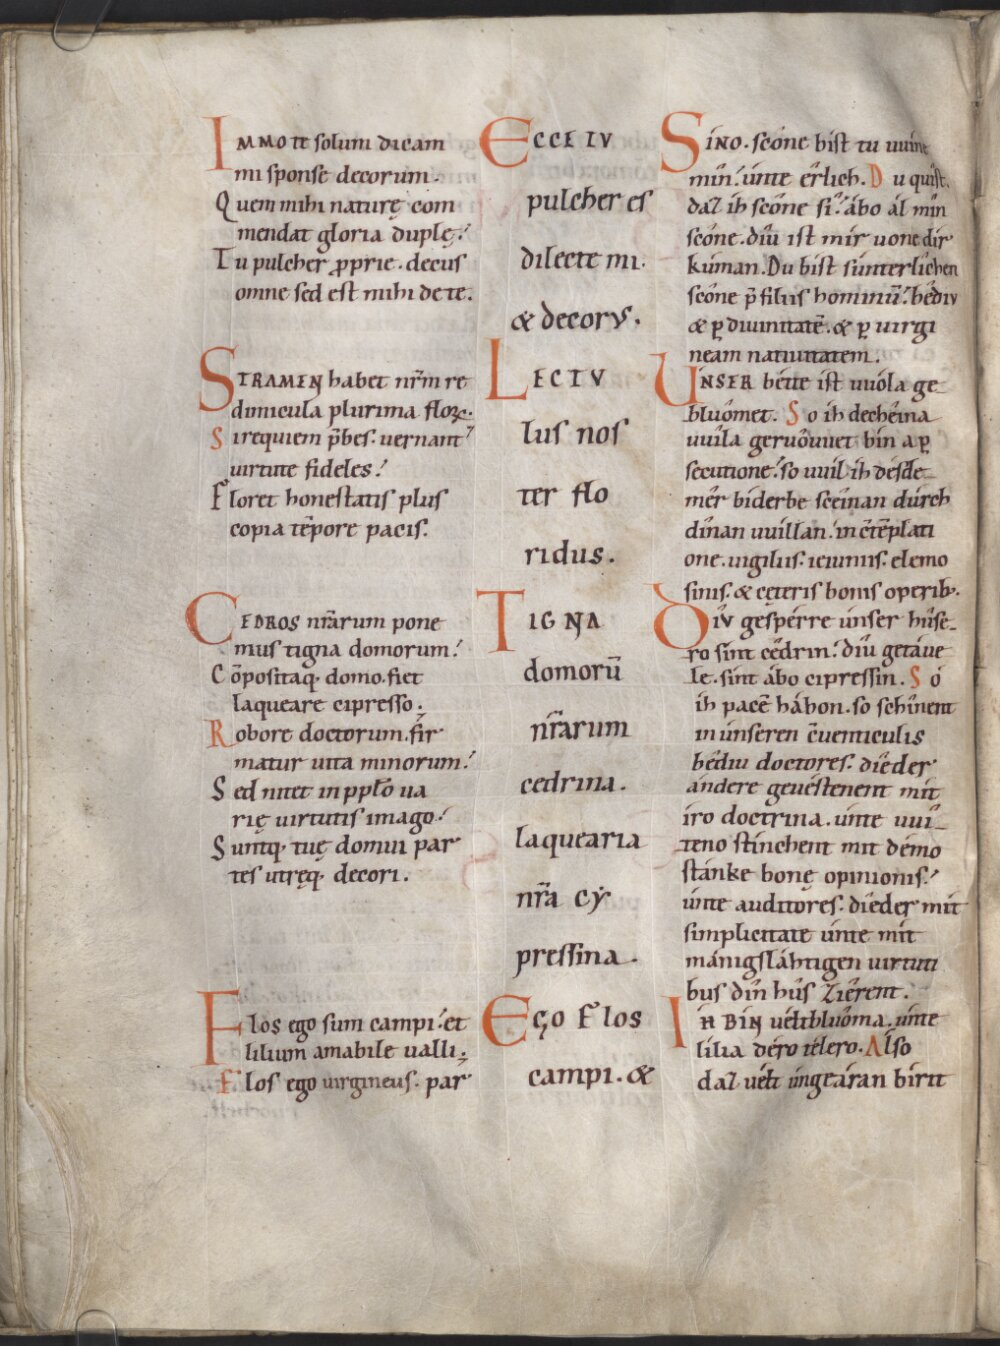 IMMO te solum dicam
mi sponse decorum.
Quem mihi naturę com
mendat gloria duplę.
Tu pulcher ꝓprie. decus
omne sed est mihi de te.
STRAMEN habet nr̄m re
dimicula plurima floꝝ.
Si requiem p̄bes. uernant
uirtute fideles.
Floret honestatis plus
copia tēpore pacis.
CEDROS nr̄arum pone
mus tigna domorum.
Cōpositaq. domo. fiet
laqueare cipresso.
Robore doctorum. fir
matur uita minorum.
Sed nitet in pplō ua
rię uirtutis imago.
Suntq. tuę domui par
tes utręq. decori.
Flos ego sum campi. et
lilium amabile ualli.
Flos ego uirgineus. par
ECCE TV
pulcher es
dilecte mi.
& decorus.
LECTV
lus nos
ter flo
ridus.
TIGNA
domorū
nr̄arum
cedrina.
laquearia
nr̄a cẏ
pressina.
Ego Flos
campi. &
SINO. scône bist tu uuine
min. unte êrlich. Du quîst.
daz ih scône si. âbo âl mîn
scône. dîu ist mir uone dir
kuman. Du bist sunterlichen
scône p̄ filiis hominū. bêdiv
& ꝑ diuinitatē. & ꝑ uirgi
neam natiuitatem.
UNSER bette ist uuola ge
bluômet. So ih dechêina
uuîla geruôuuet bin a ꝑ
secutione. so uuil ih desde
mêr biderbe sceinan durch
dînan uuillan. in cōtēplati
one. uigiliis. ieiuniis. elemo
sinis. & cęteris bonis operib.
DIV gesperre unser hûse
ro sint cêdrin. dîu getâue
le. sint âbo cipressin. So
ih pacē hâbon. so schînent
in unseren cōuenticulis
bêdiu doctores. dîe der
andere geuestenent mit
iro doctrina. unte uuî
teno stinchent mit demo
stanke bonę opinionis.
unte auditores. dîeder mit
simplicitate unte mit
mânigslahtigen uirtuti
bus dîn hûs zîerent.
IH BIN ueltbluôma. unte
lilia dero telero. Also
daz uelt ungearan birit